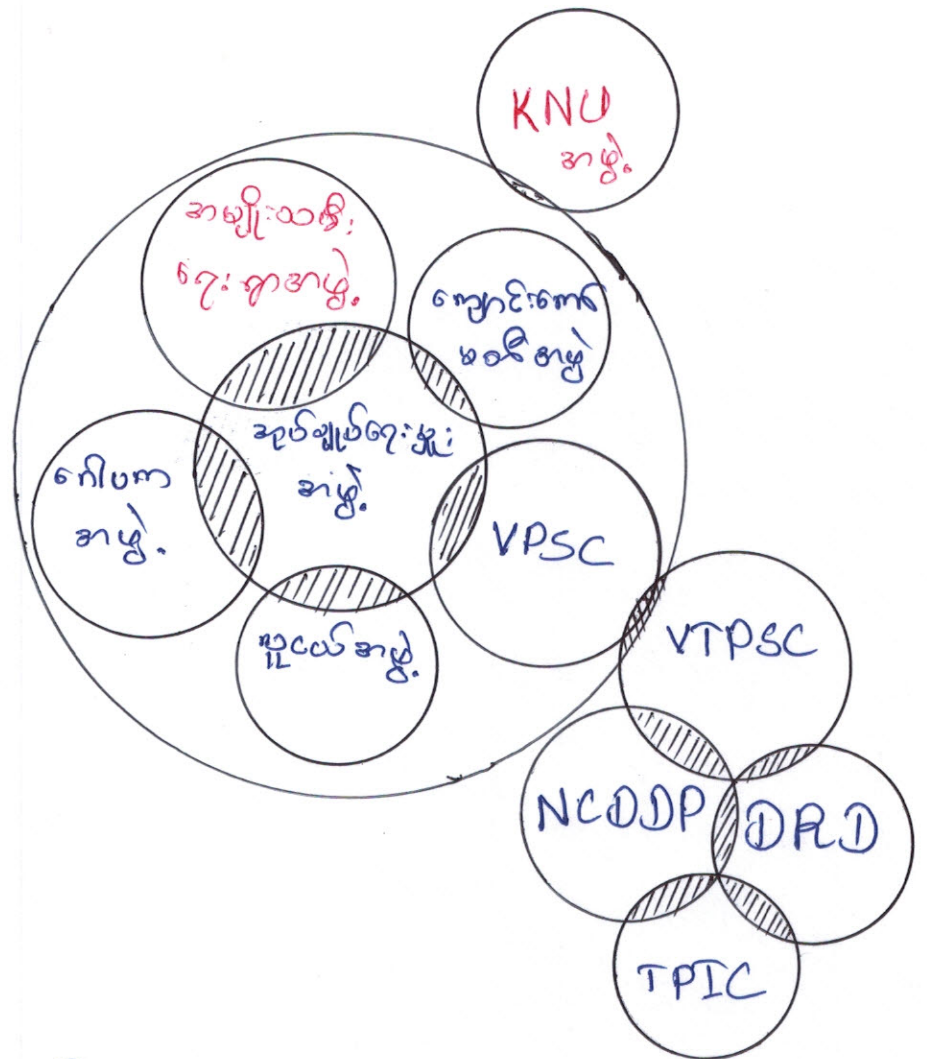 KNU
အဖွဲ့
အမျိုးသမီး
ရေးရာအဖွဲ့
ကျောင်းကော်
မတီအဖွဲ့
အုပ်ချုပ်ရေးမှူး
အဖွဲ့
ဂေါပက
အဖွဲ့
VPSC
လူငယ်အဖွဲ့
VTPSC
NCDDP
DRD
TPIC